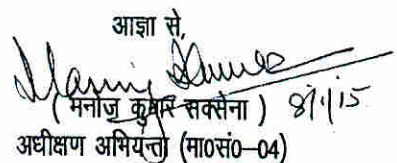 आज्ञा से,
( मनोज कुमार सक्सेना ) 8/1/15
अधीक्षण अभियन्ता (मा0सं0-04)